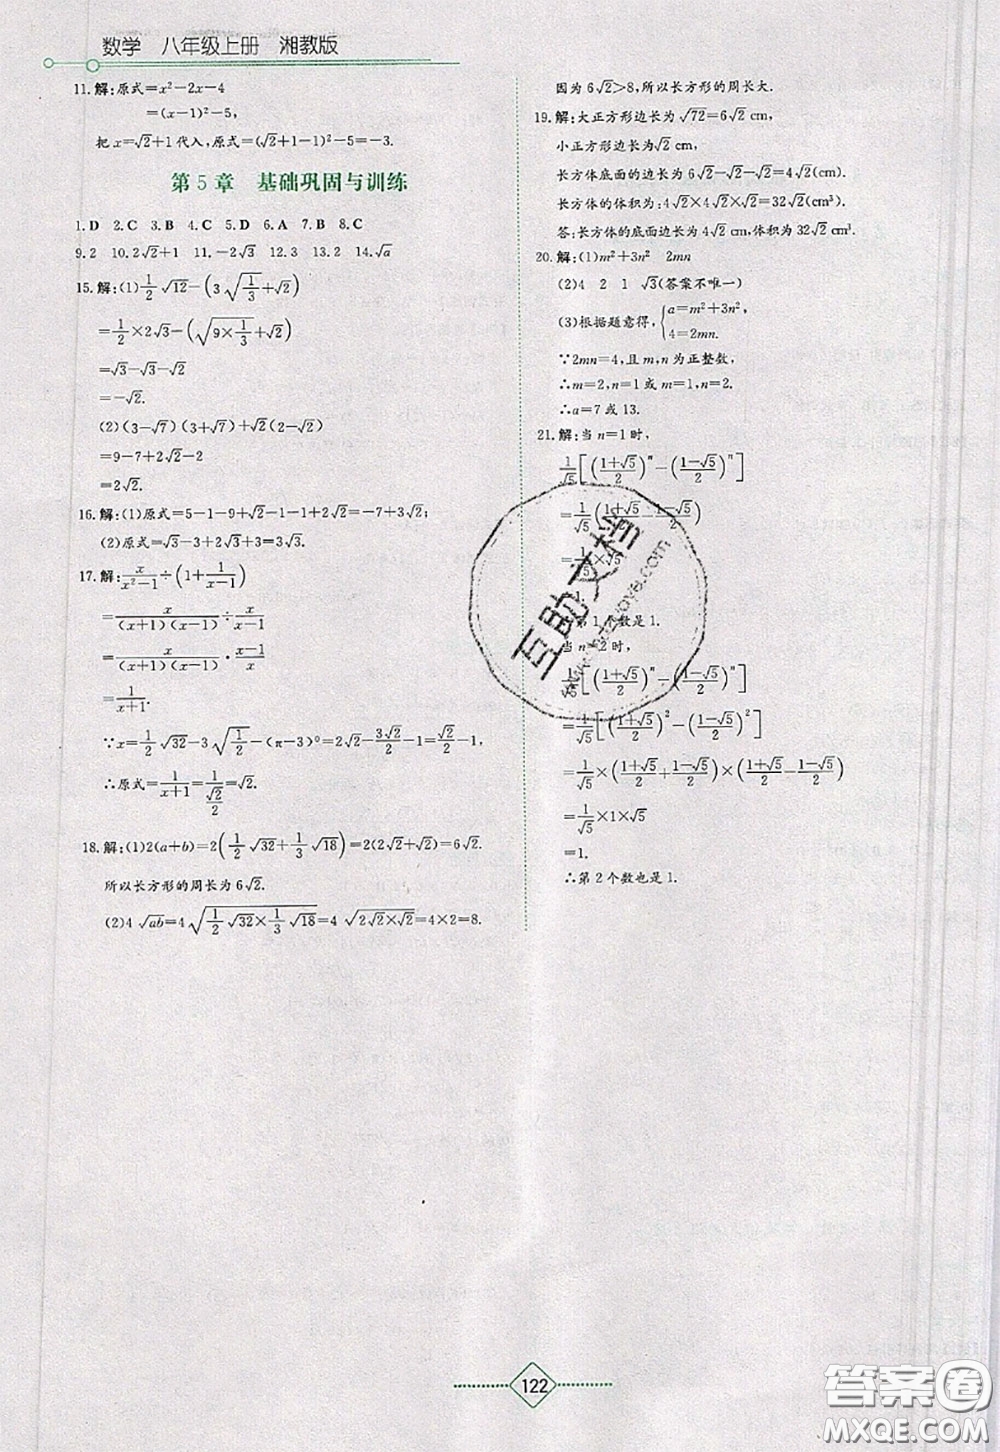 数学 八年级上册 湘教版
11.解:原式=x²-2x-4
=(x-1)²-5,
把x=√2+1代入,原式=(√2+1-1)²-5=-3.
第5章 基础巩固与训练
1.D 2.C 3.B 4.C 5.D 6.A 7.B 8.C
9.2 10.2√2+1 11.-2√3 12.3 13.6 14.√a
15.解:(1)1/2 √12-(3√(1/3)+√2)
=1/2×2√3-(√(9×1/3)+√2)
=√3-√3-√2
=-√2.
(2)(3-√7)(3+√7)+√2(2-√2)
=9-7+2√2-2
=2√2.
16.解:(1)原式=5-1-9+√2-1-1+2√2=-7+3√2;
(2)原式=√3-√3+3√3=3√3.
17.解:x/(x²-1)÷(1+1/(x-1))
=x/((x+1)(x-1))÷x/(x-1)
=x/((x+1)(x-1))·(x-1)/x
=1/(x+1).
∵x=1/2 √32-3√(1/2)-(π-3)⁰=2√2-3√2/2-1=√2/2-1,
∴原式=1/(x+1)=1/(√2/2)=√2.
18.解:(1)2(a+b)=2(1/2 √32+1/3 √18)=2(2√2+√2)=6√2.
所以长方形的周长为6√2.
(2)4√ab=4√(1/2 √32×1/3 √18)=4√(2√2×√2)=4×2=8.
因为6√2>8,所以长方形的周长大.
19.解:大正方形边长为√72=6√2 cm,
小正方形边长为√2 cm,
长方体底面的边长为6√2-√2-√2=4√2(cm),
长方体的体积为:4√2×4√2×√2=32√2(cm³).
答:长方体的底面边长为4√2 cm,体积为32√2 cm³.
20.解:(1)m²+3n² 2mn
(2)4 2 1 √3(答案不唯一)
(3)根据题意得,{a=m²+3n², 4=2mn.
∵2mn=4,且m,n为正整数,
∴m=2,n=1或m=1,n=2.
∴a=7或13.
21.解:当n=1时,
1/√5[((1+√5)/2)ⁿ-((1-√5)/2)ⁿ]
=1/√5((1+√5)/2-(1-√5)/2)
=1/√5×√5
第1个数是1.
当n=2时,
1/√5[((1+√5)/2)ⁿ-((1-√5)/2)ⁿ]
=1/√5[((1+√5)/2)²-((1-√5)/2)²]
=1/√5×((1+√5)/2+(1-√5)/2)×((1+√5)/2-(1-√5)/2)
=1/√5×1×√5
=1.
∴第2个数也是1.
互助文档
122
答案圈
MXQE.COM